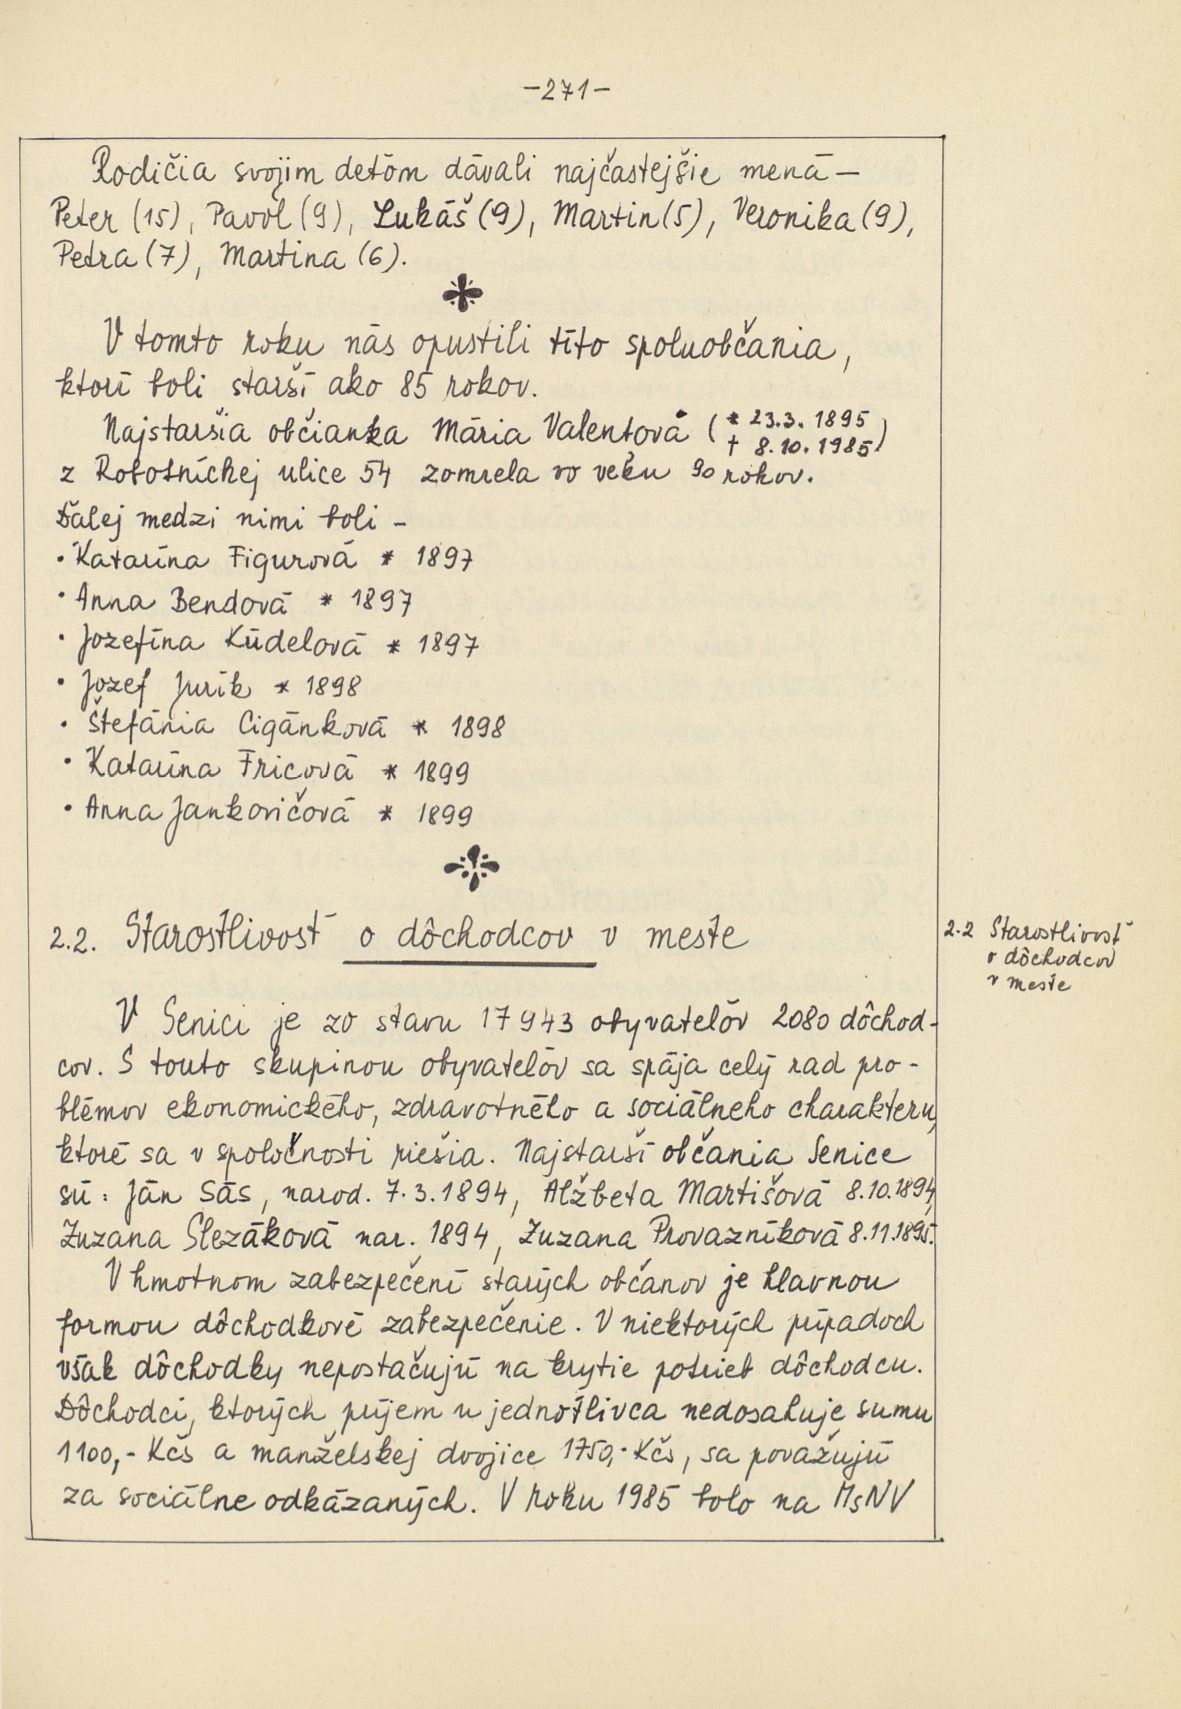 -271-
Rodičia svojim deťom dávali najčastejšie mená -
Peter (15), Pavol (9), Lukáš (9), Martin (5), Veronika (9),
Petra (7), Martina (6).
V tomto roku nás opustili títo spoluobčania,
ktorí boli starší ako 85 rokov.
Najstaršia občianka Mária Valentová (* 23.3. 1895
† 8.10.1985)
z Robotníckej ulice 54 zomrela vo veku 90 rokov.
Ďalej medzi nimi boli -
• Katarína Figurová * 1897
• Anna Bendová * 1897
• Jozefína Kúdelová * 1897
• Jozef Jurík * 1898
• Štefánia Cigánková * 1898
• Katarína Fricová * 1899
• Anna Jankovičová * 1899
2.2. Starostlivosť o dôchodcov v meste
2.2 Starostlivosť
o dôchodcov
v meste
V Senici je zo stavu 17943 obyvateľov 2080 dôchod-
cov. S touto skupinou obyvateľov sa spája celý rad pro-
blémov ekonomického, zdravotného a sociálneho charakteru,
ktoré sa v spoločnosti riešia. Najstarší občania Senice
sú: Ján Sás, narod. 7.3.1894, Alžbeta Martišová 8.10.1894,
Zuzana Slezáková nar. 1894, Zuzana Provazníková 8.11.1895.
V hmotnom zabezpečení starých občanov je hlavnou
formou dôchodkové zabezpečenie. V niektorých prípadoch
však dôchodky nepostačujú na krytie potrieb dôchodcu.
Dôchodci, ktorých príjem u jednotlivca nedosahuje sumu
1100,- Kčs a manželskej dvojice 1750,- Kčs, sa považujú
za sociálne odkázaných. V roku 1985 bolo na MsNV